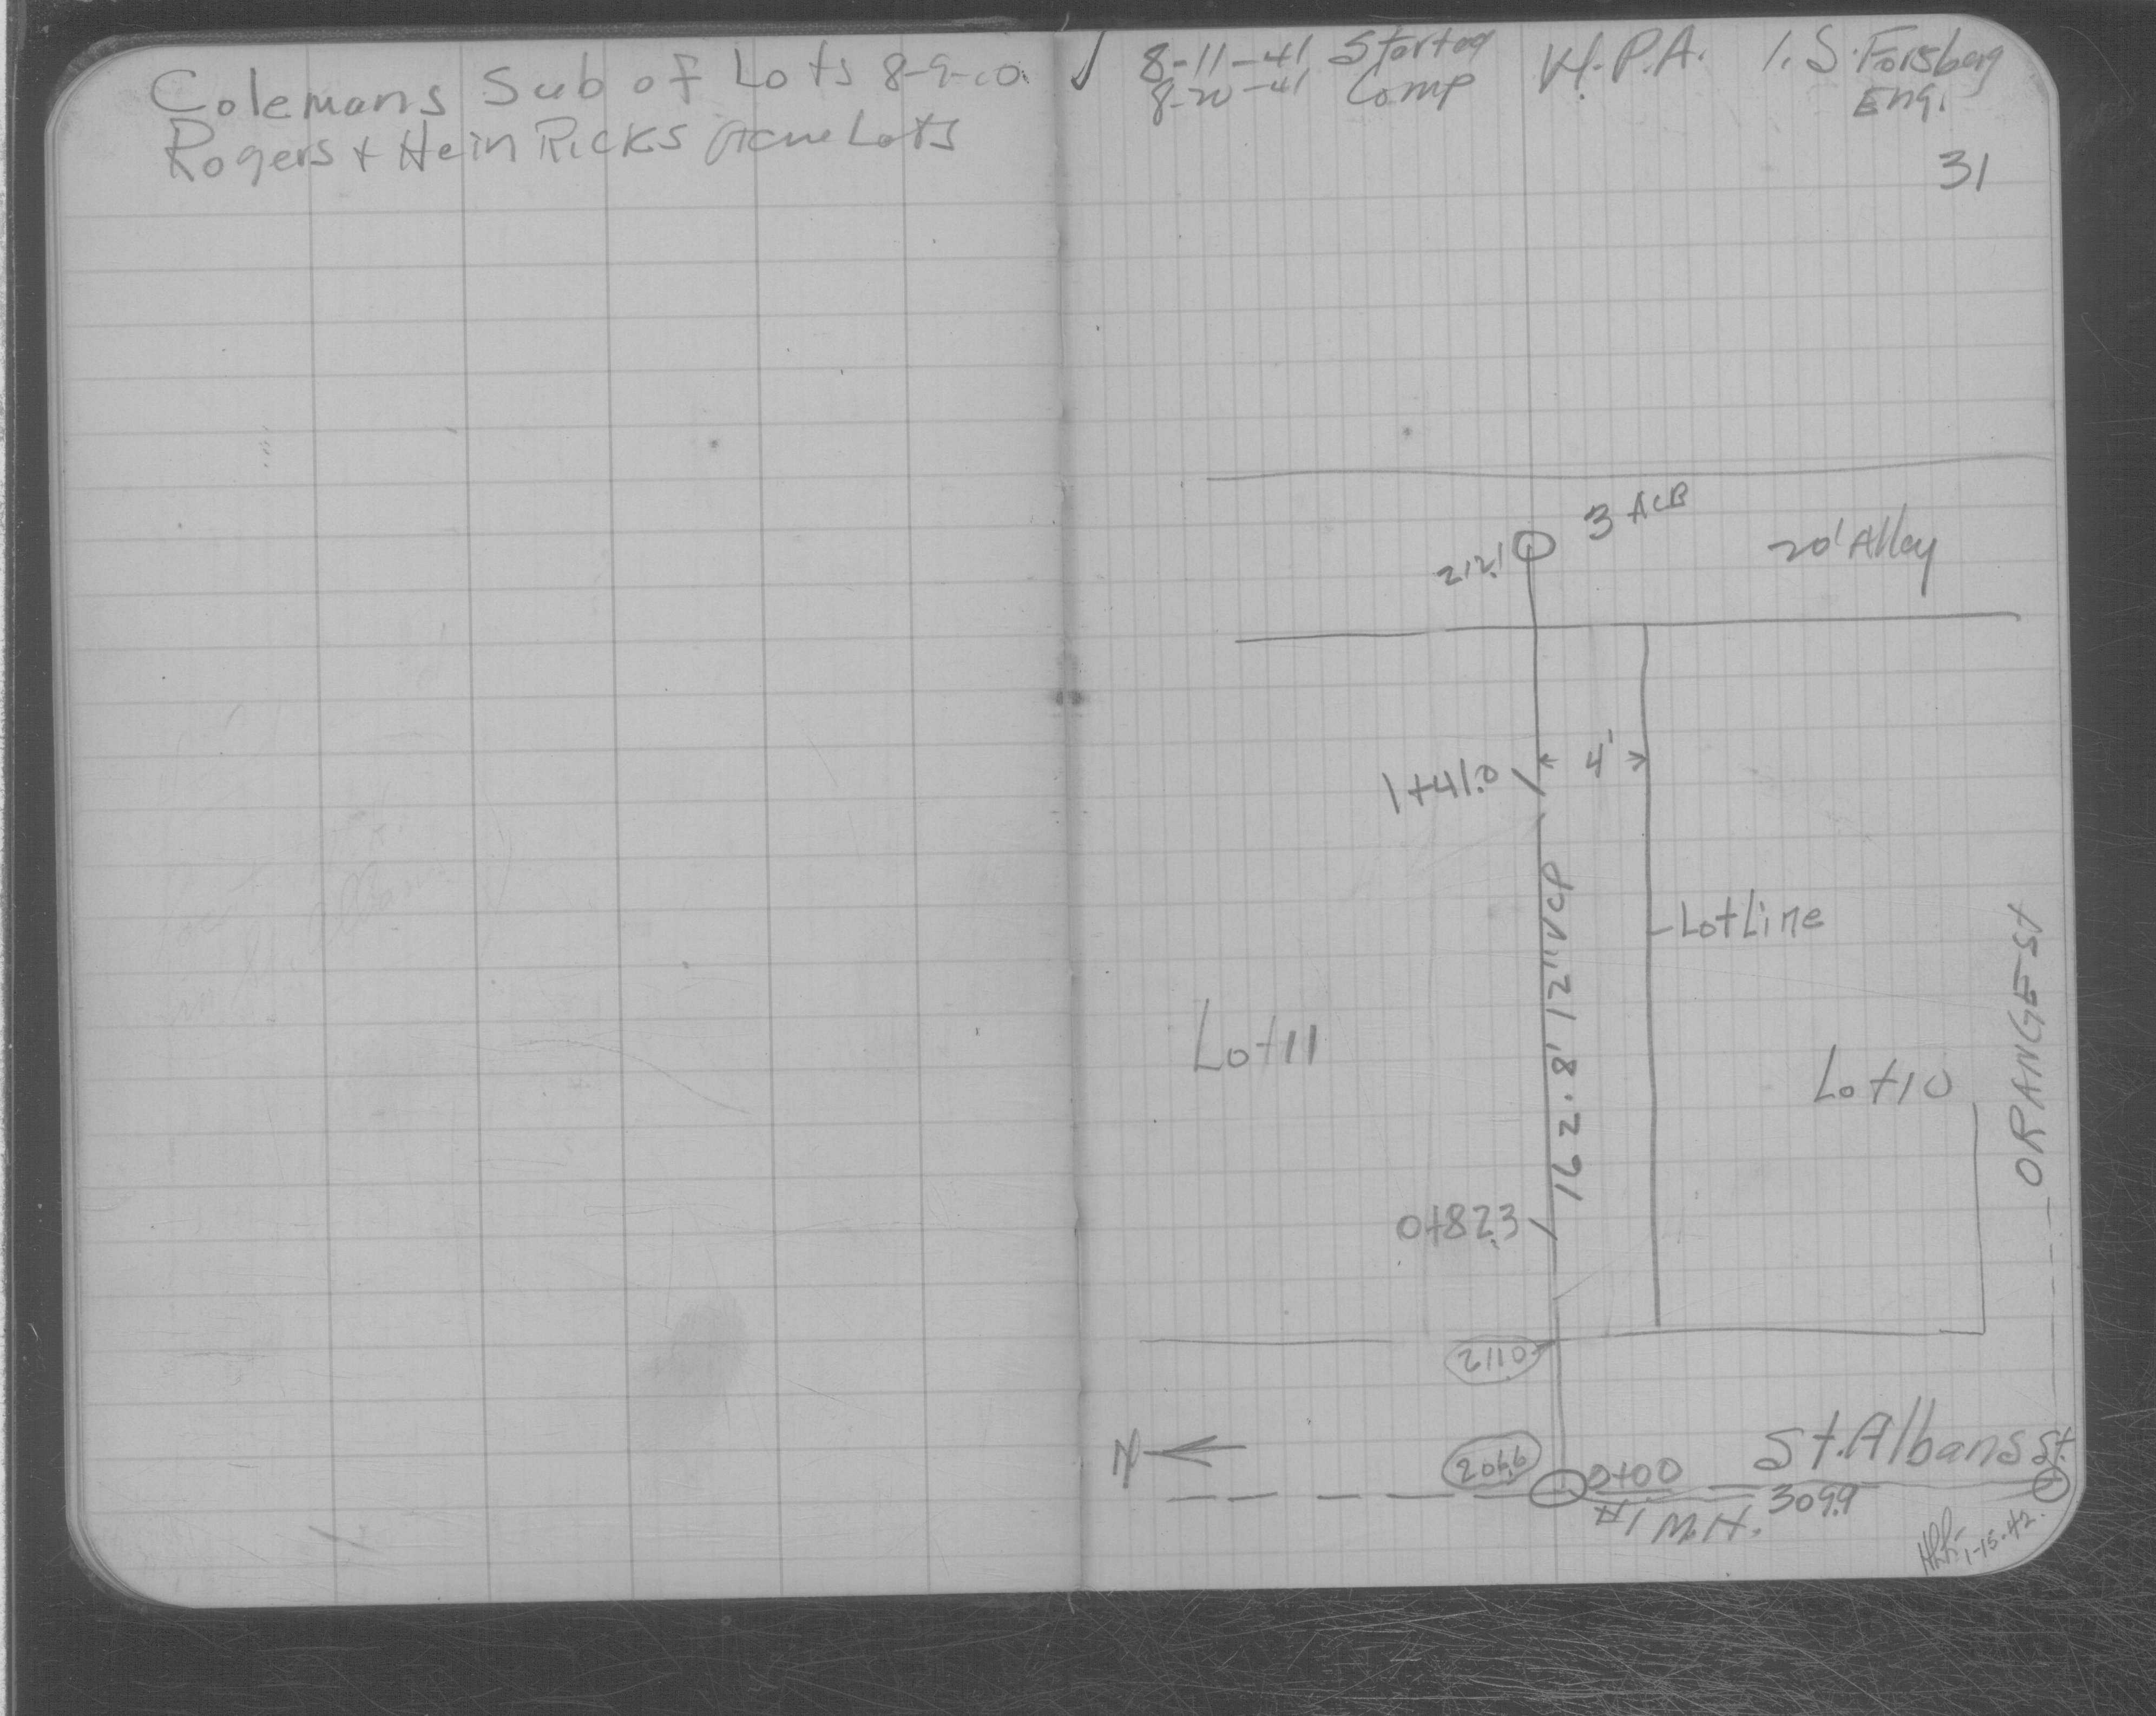 Colemans Sub of Lots 8-9-10
Rogers + HeinRicks Acre Lots
8-11-41 Started W.P.A. I.S. Forsberg
8-20-41 Comp Eng.
31
3 ACB
212.1
20' Alley
1+41.0
4'
162.8' 12" VCP
Lot Line
ORANGE St
Lot 11
Lot 10
0+82.3
211.0
N
206.6
0+00
St. Albans St.
#1 M.H.
309.9
1-15-42